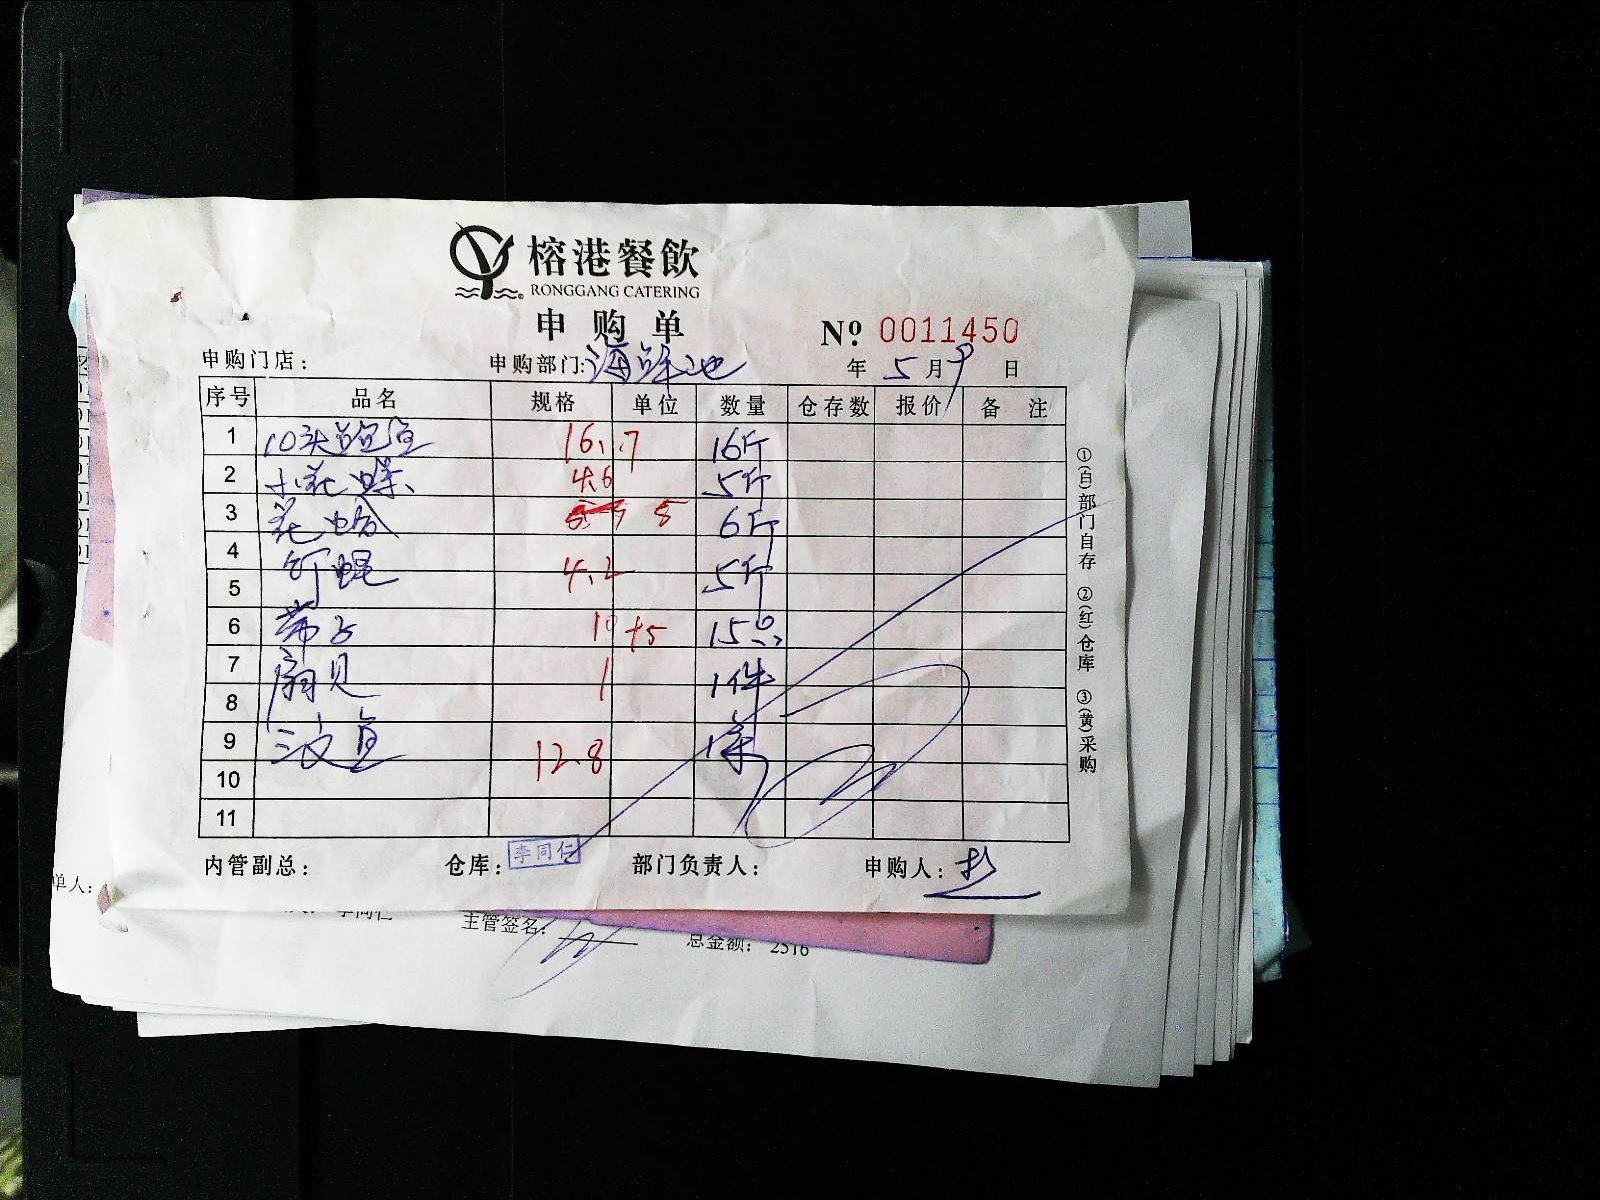 榕港餐飲
RONGGANG CATERING
申购单
№: 0011450
申购门店: 申购部门: 海鲜池 年 5 月 9 日
序号 品名 规格 单位 数量 仓存数 报价 备 注
1 10头鲍鱼 16.7 16斤
2 小花螺 4.6 5斤
3 花蛤 5 6斤
4
蛏 4.2 5斤
5
6 带子 10 +5 15只
7 扇贝 1 1件
8
9 三文鱼 12.8 1条
10
11
①(白)部门自存 ②(红)仓库 ③(黄)采购
内管副总: 仓库: 李同仁 部门负责人: 申购人:
单人:
李同仁 主管签名: 总金额: 2516